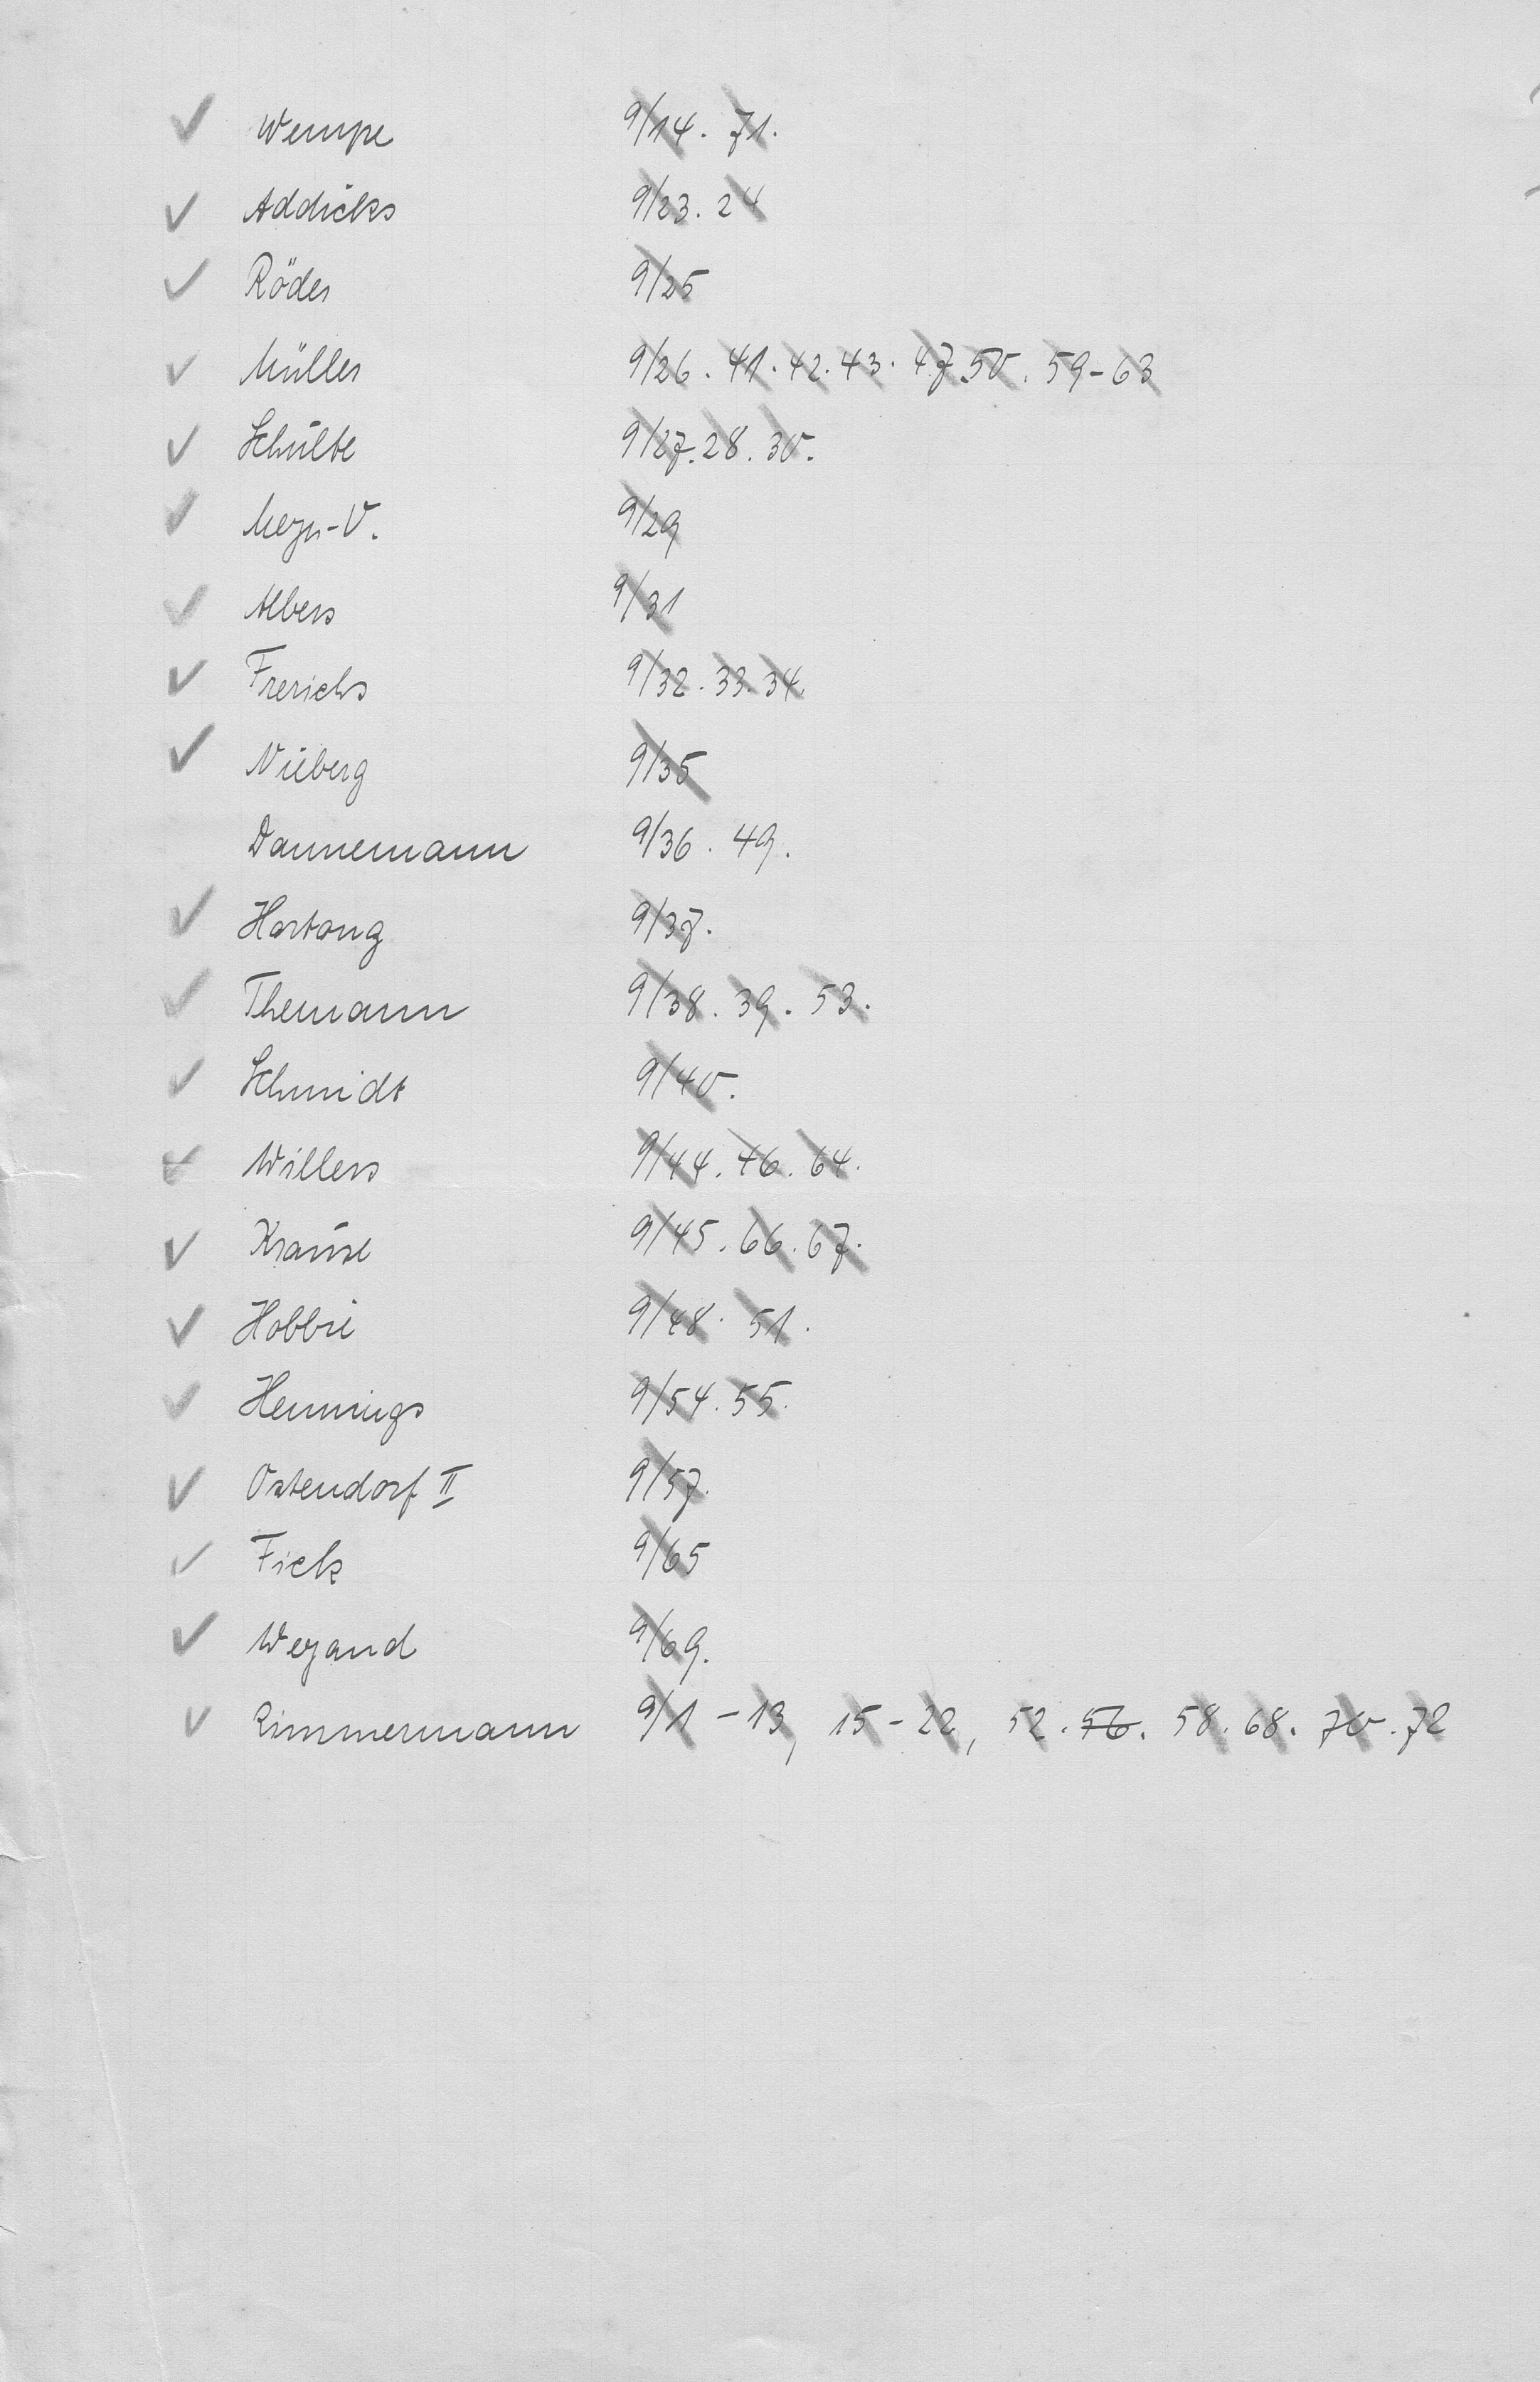 ✓ Wempe 9/14. 71.
✓ Addicks 9/23. 24
✓ Röder 9/25
✓ Müller 9/26. 41. 42. 43. 47. 50. 59-63
✓ Schulte 9/27. 28. 30.
✓ Meyer-V. 9/29
✓ Albers 9/31
✓ Frerichs 9/32. 33. 34.
✓ Nieberg 9/35
Dannemann 9/36. 49.
✓ Hartong 9/37.
✓ Themann 9/38. 39. 53.
✓ Schmidt 9/40.
✓ Willers 9/44. 46. 64.
✓ Krause 9/45. 66. 67.
✓ Hobbie 9/48. 51.
✓ Hennings 9/54. 55.
✓ Ostendorf II 9/57.
✓ Fick 9/65
✓ Weyand 9/69.
✓ Zimmermann 9/1-13, 15-22, 52. 56. 58. 68. 70. 72